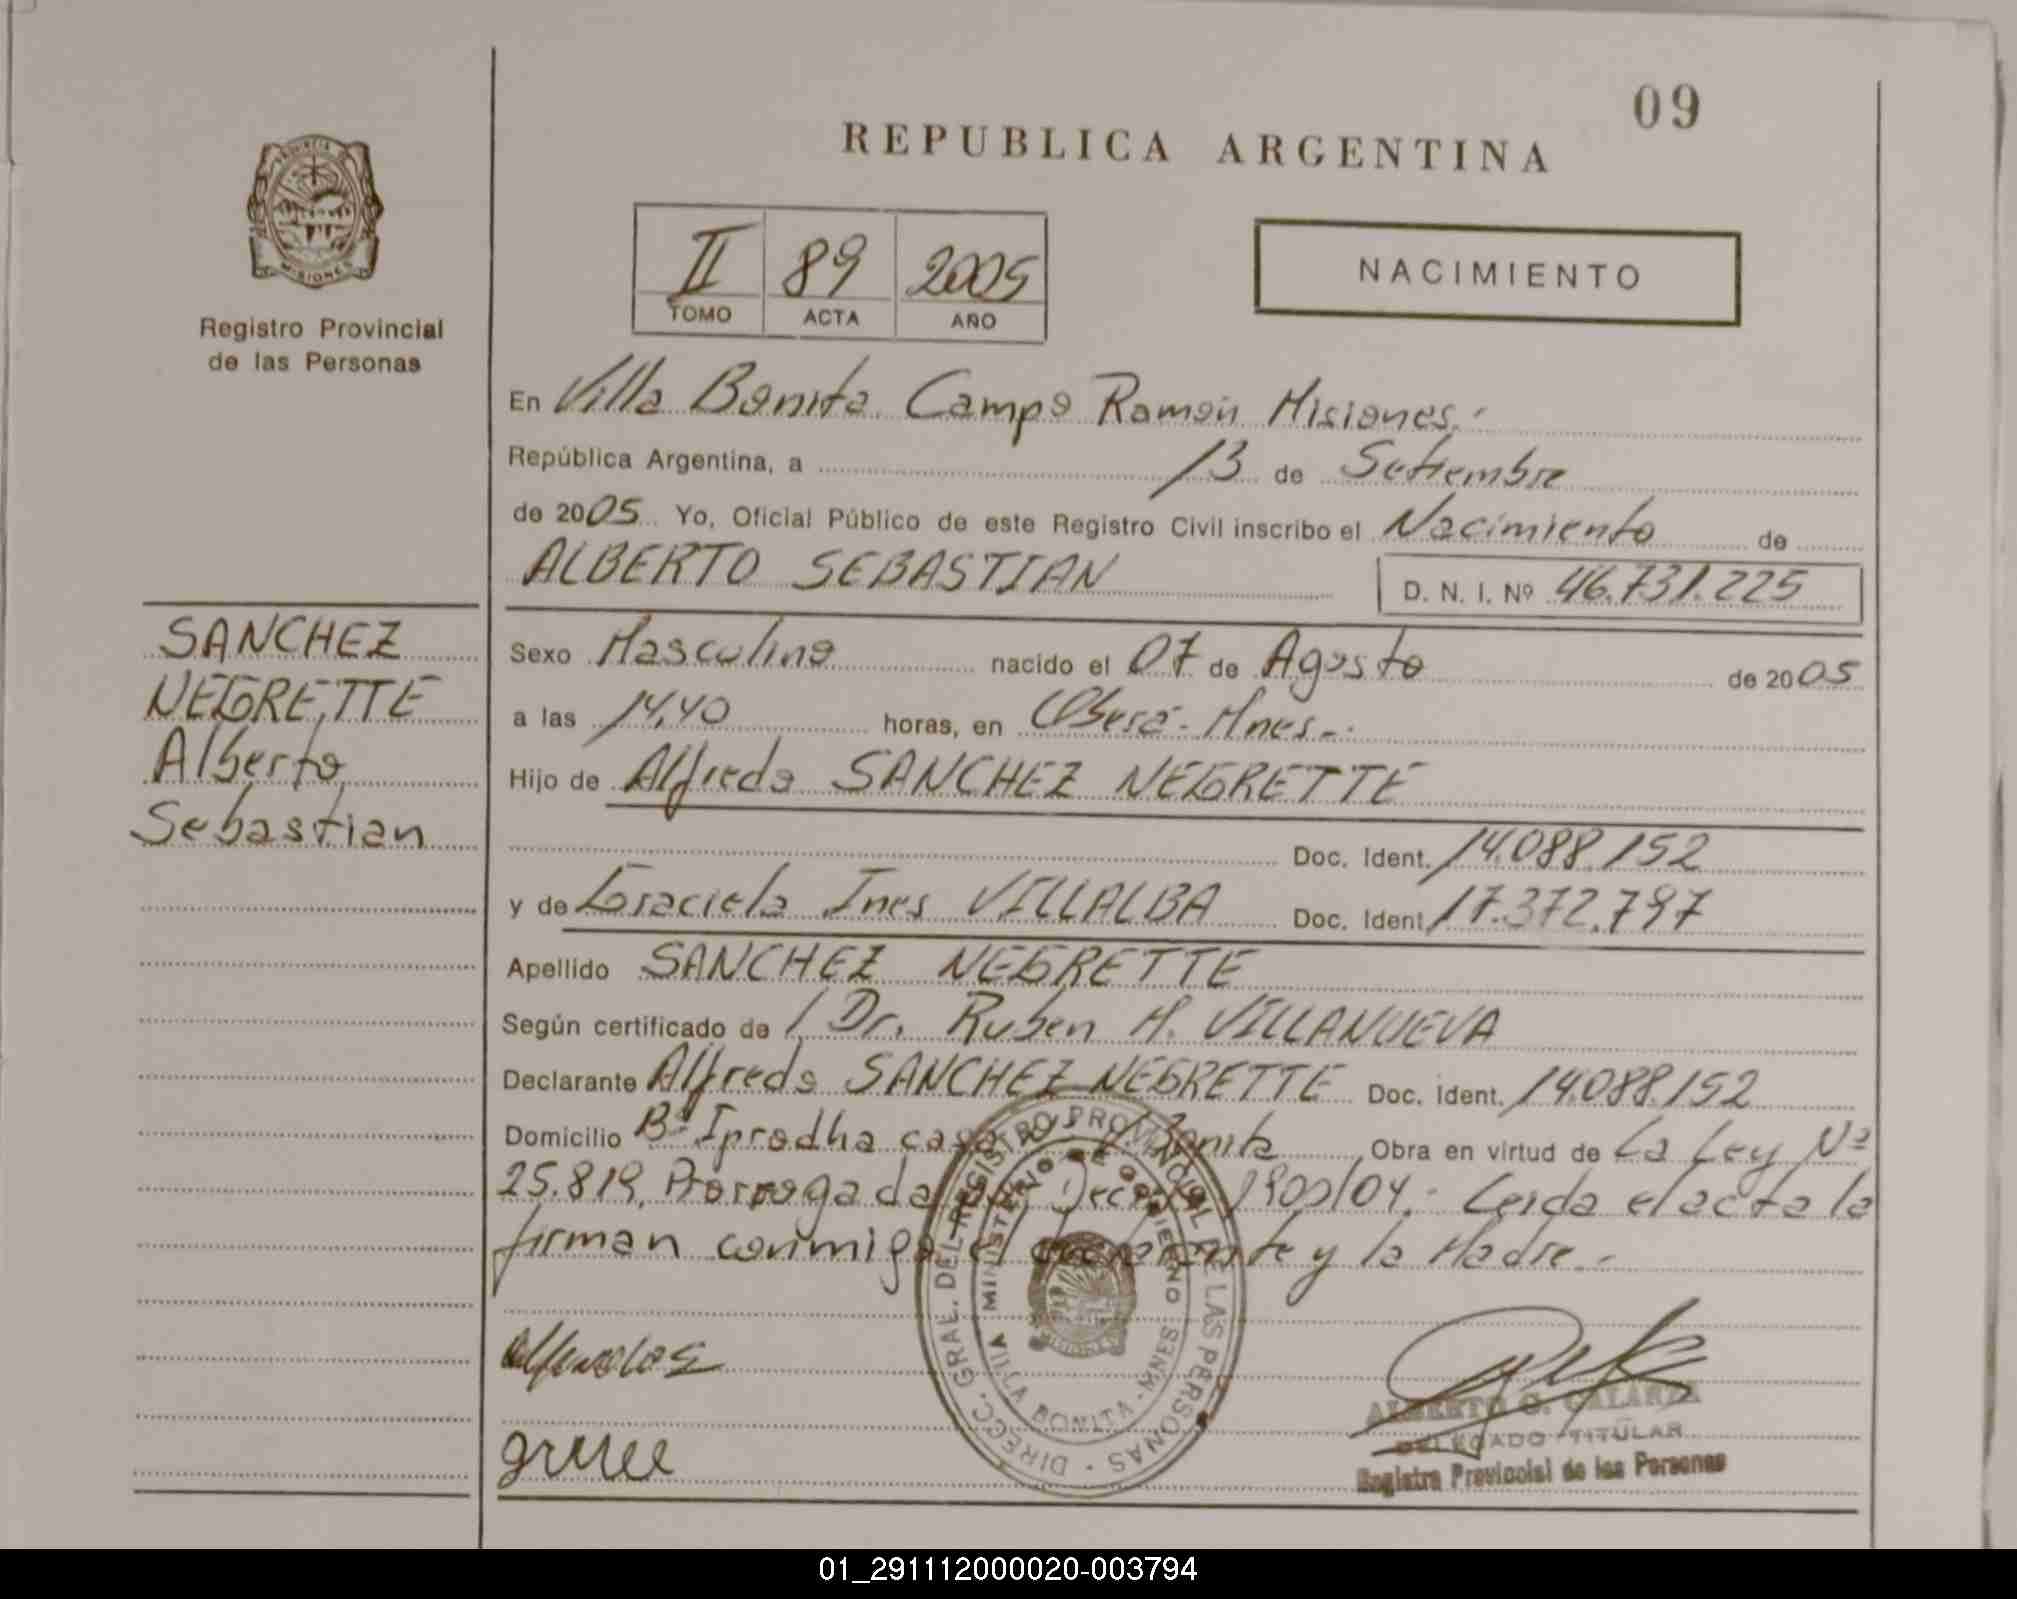 09
REPUBLICA ARGENTINA
PROVINCIA DE
MISIONES
Registro Provincial
de las Personas
II 89 2005
TOMO ACTA AÑO
NACIMIENTO
En Villa Bonita Campo Ramón Misiones.
República Argentina, a 13 de Setiembre
de 2005 Yo, Oficial Público de este Registro Civil inscribo el Nacimiento de
ALBERTO SEBASTIAN D. N. I. Nº 46.731.225
SANCHEZ
NEGRETTE
Alberto
Sebastian
Sexo Masculino nacido el 07 de Agosto de 2005
a las 14,40 horas, en Oberá - Mnes -.
Hijo de Alfredo SANCHEZ NEGRETTE
Doc. Ident. 14.088.152
y de Graciela Ines VILLALBA Doc. Ident. 17.372.797
Apellido SANCHEZ NEGRETTE
Según certificado de / Dr. Ruben H. VILLANUEVA
Declarante Alfredo SANCHEZ NEGRETTE Doc. Ident. 14.088.152
Domicilio Bº Iprodha casa Bonita Obra en virtud de La Ley Nº
25.819, Prorrogada Decreto 1900/04. Leida el acta la
firman conmigo el declarante y la Madre.-
DIRECC. GRAL. DEL REGISTRO PROVINCIAL DE LAS PERSONAS
MINISTERIO DE GOBIERNO
VILLA BONITA - MNES
ALBERTO G. GALARZA
DELEGADO TITULAR
Registro Provincial de las Personas
01_291112000020-003794